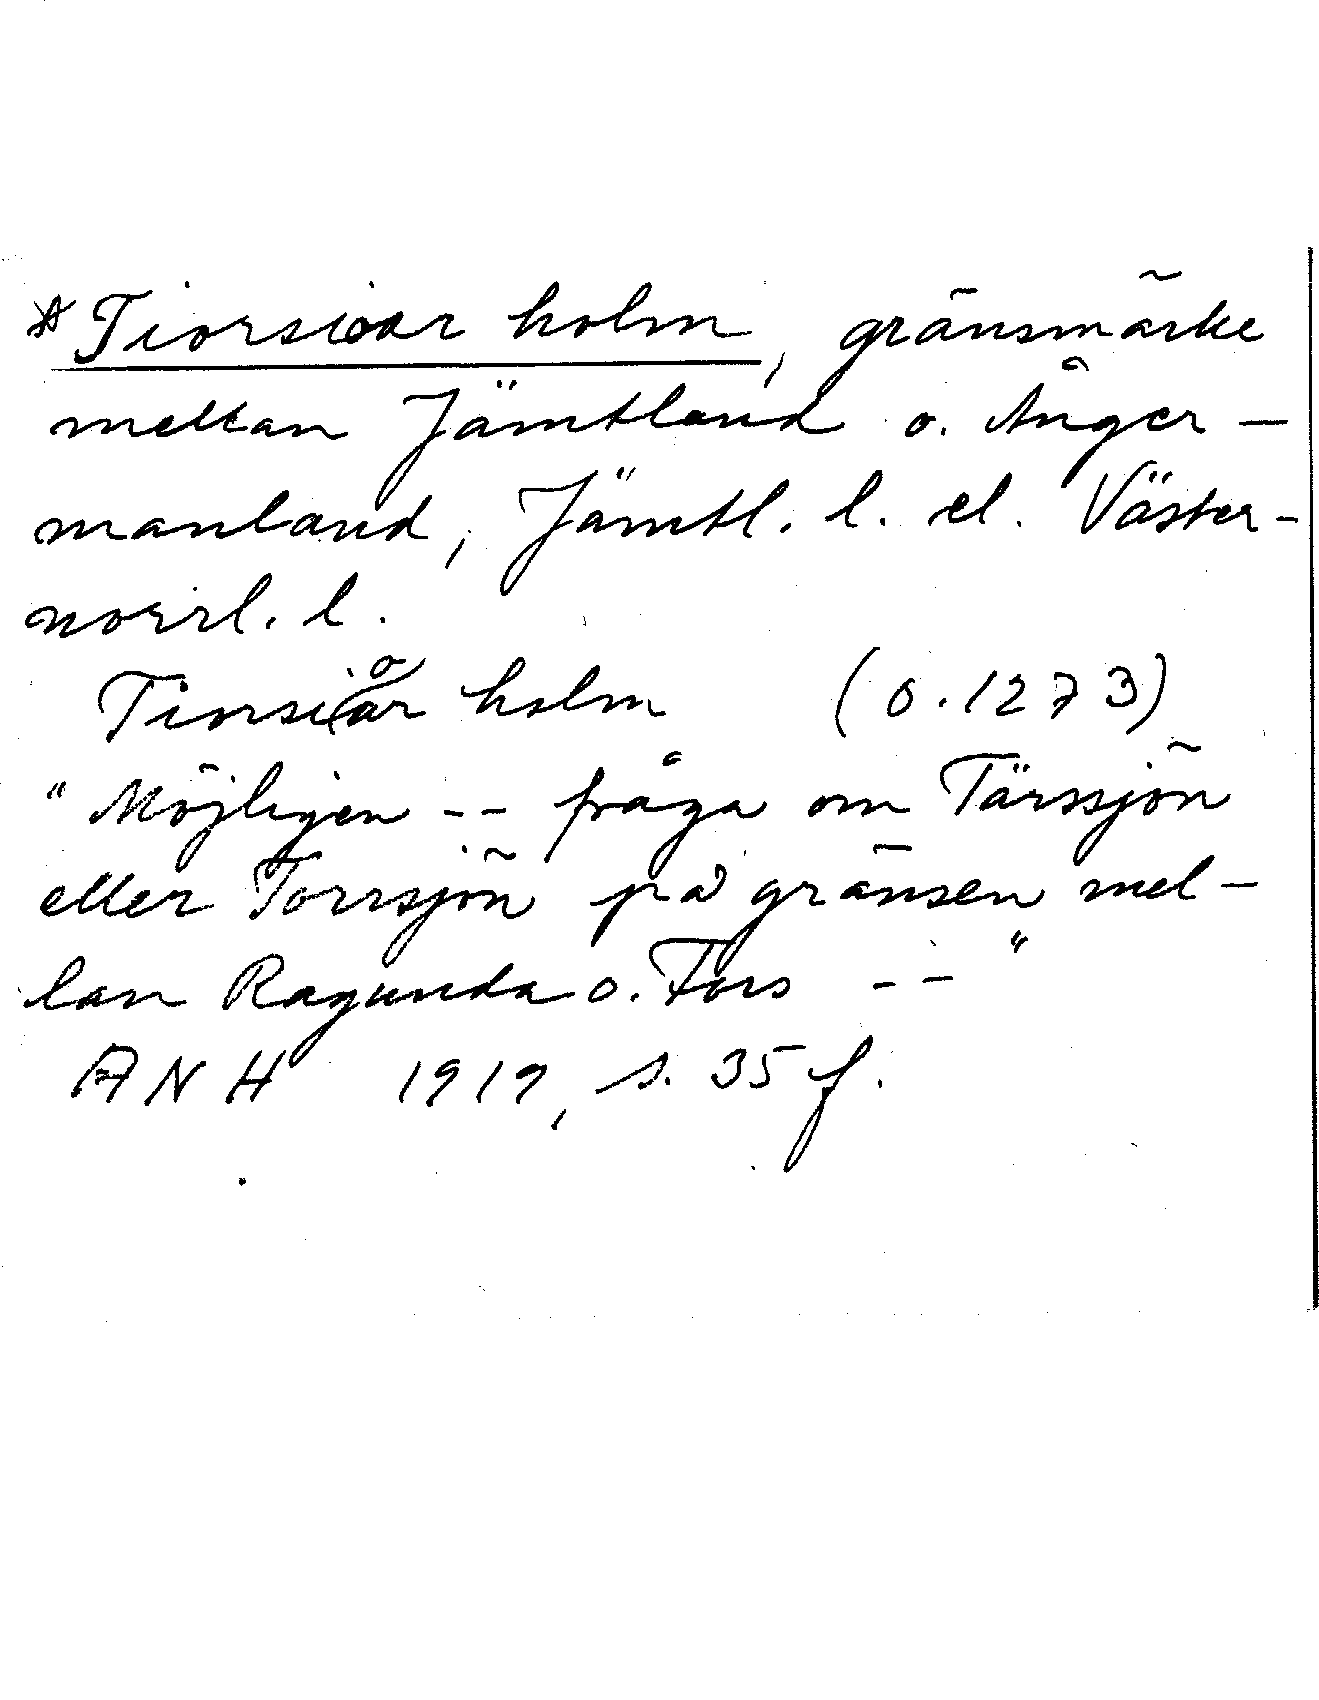 * Tiorsioar holm, gränsmärke
mellan Jämtland o. Ånger-
manland, Jämtl. l. el. Väster-
norrl. l.
Tiorsioar holm (o. 1273)
"Möjligen -- fråga om Tärssjön
eller Torrsjön på gränsen mel-
lan Ragunda o. Fors -- "
ANH 1919, s. 35 f.